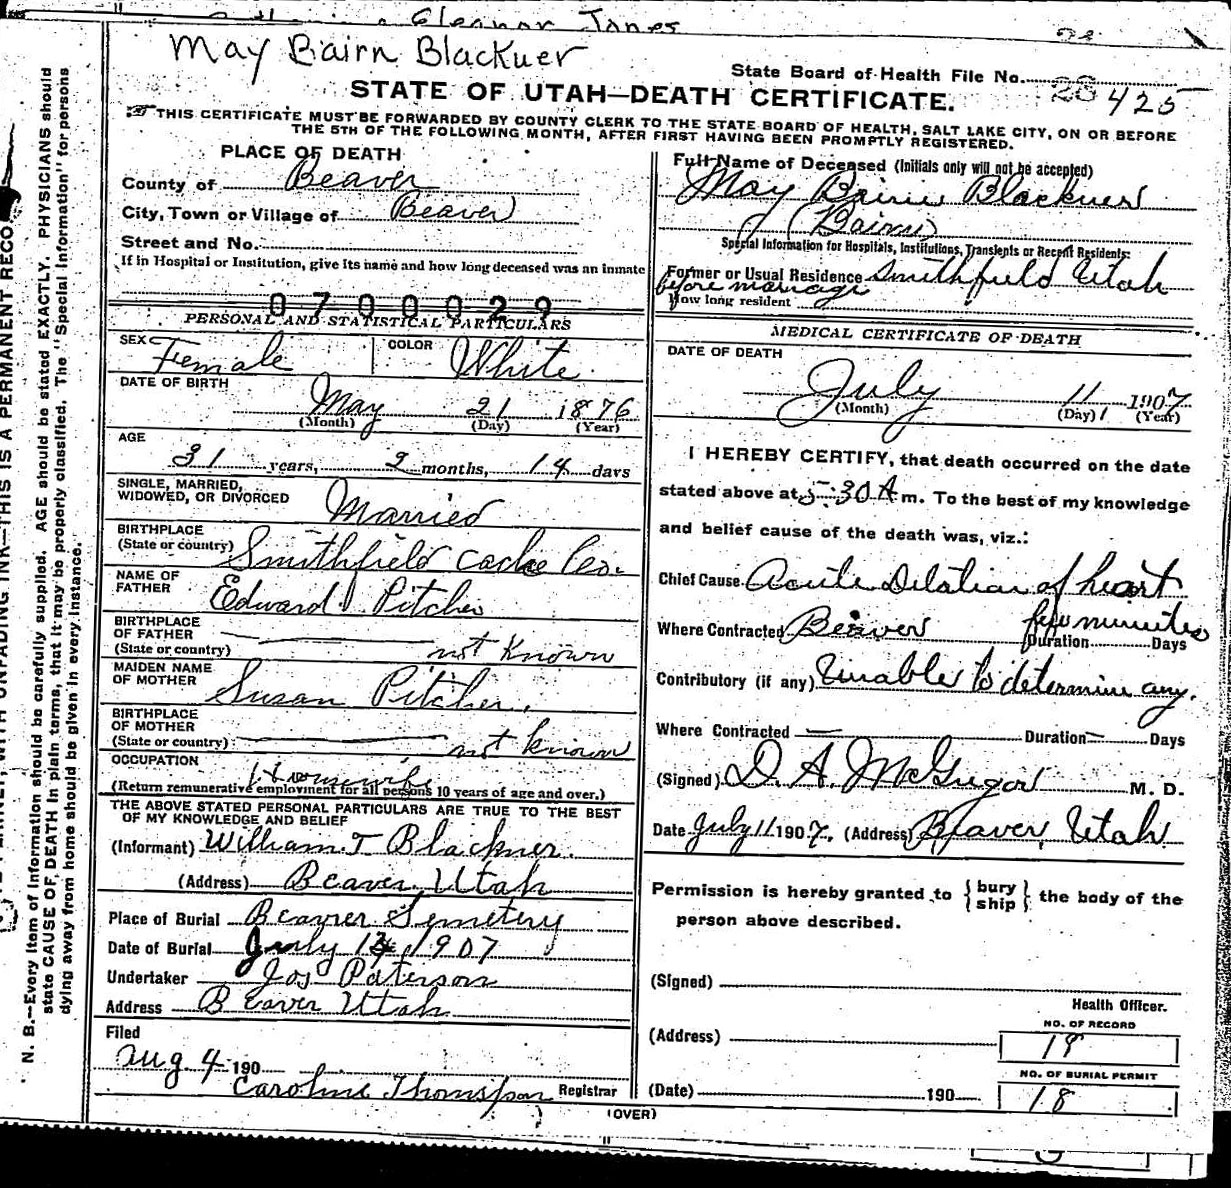 Eleanor Jones
May Bairn Blackner
State Board of Health File No. 26 425
STATE OF UTAH—DEATH CERTIFICATE.
THIS CERTIFICATE MUST BE FORWARDED BY COUNTY CLERK TO THE STATE BOARD OF HEALTH, SALT LAKE CITY, ON OR BEFORE
THE 5TH OF THE FOLLOWING MONTH, AFTER FIRST HAVING BEEN PROMPTLY REGISTERED.
PLACE OF DEATH
County of Beaver
City, Town or Village of Beaver
Street and No.
If in Hospital or Institution, give its name and how long deceased was an inmate
0700029
PERSONAL AND STATISTICAL PARTICULARS
SEX Female COLOR White
DATE OF BIRTH
May 21 1876
(Month) (Day) (Year)
AGE
31 years, 2 months, 14 days
SINGLE, MARRIED,
WIDOWED, OR DIVORCED Married
BIRTHPLACE
(State or country) Smithfield Cache Co.
NAME OF
FATHER Edward Pitcher
BIRTHPLACE
OF FATHER
(State or country) not Known
MAIDEN NAME
OF MOTHER Susan Pitcher.
BIRTHPLACE
OF MOTHER
(State or country) not known
OCCUPATION Housewife
(Return remunerative employment for all persons 10 years of age and over.)
THE ABOVE STATED PERSONAL PARTICULARS ARE TRUE TO THE BEST
OF MY KNOWLEDGE AND BELIEF
(Informant) William T Blackner.
(Address) Beaver Utah
Place of Burial Beavrer Semetery
Date of Burial July 1907
Undertaker Jos Paterson
Address Beaver Utah
Filed
Aug. 4 190
Caroline Thompson Registrar
Full Name of Deceased (Initials only will not be accepted)
May Bairn Blackner
(Bairn)
Special Information for Hospitals, Institutions, Transients or Recent Residents:
Former or Usual Residence Smithfield Utah
before marriage
How long resident
MEDICAL CERTIFICATE OF DEATH
DATE OF DEATH
July 11 1907
(Month) (Day) (Year)
I HEREBY CERTIFY, that death occurred on the date
stated above at 5:30 A m. To the best of my knowledge
and belief cause of the death was, viz.:
Chief Cause Acute Dilation of heart
Where Contracted Beaver few minutes Duration Days
Contributory (if any) Unable to determine any.
Where Contracted — Duration — Days
(Signed) D. A. McGregor M. D.
Date July 11 1907. (Address) Beaver, Utah
Permission is hereby granted to {bury
ship} the body of the
person above described.
(Signed)
Health Officer.
(Address)
NO. OF RECORD
NO. OF BURIAL PERMIT
(Date) 190 18
(OVER)
N. B.—Every item of information should be carefully supplied. AGE should be stated EXACTLY. PHYSICIANS should
state CAUSE OF DEATH in plain terms, that it may be properly classified. The "Special Information" for persons
dying away from home should be given in every instance.
WITH UNFADING INK—THIS IS A PERMANENT RECO